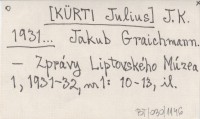 [KÜRTI Julius] J.K.
1931... Jakub Graichmann.
— Zprávy Liptovského Múzea
1, 1931-32, nr 1: 10-13, il.